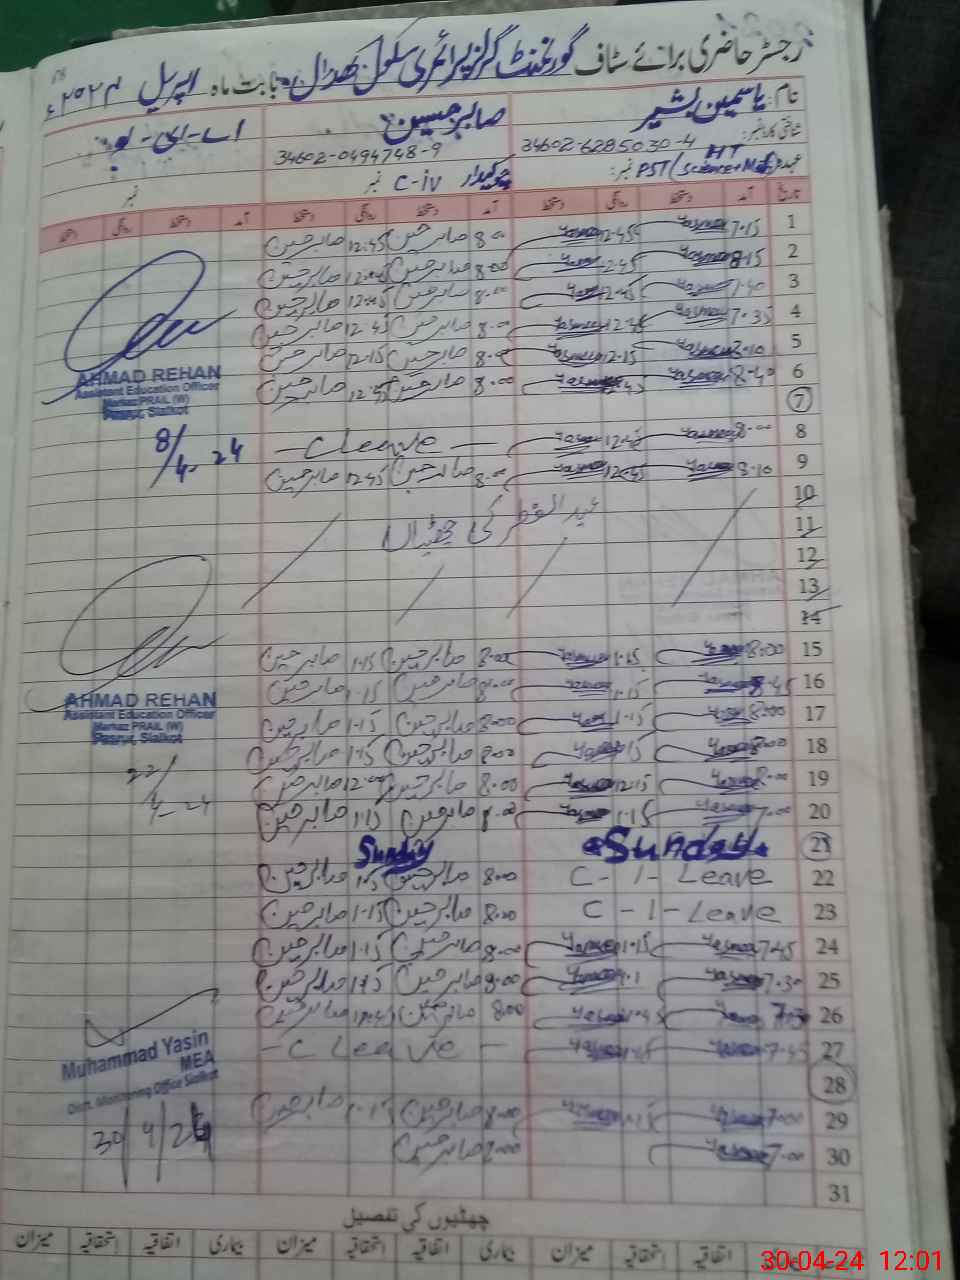 رجسٹر حاضری برائے سٹاف گورنمنٹ گرلز پرائمری سکول کھدال بابت ماہ اپریل ۲۰۲۴ء
نام: یاسمین بشیر صابر حسین
شناختی کارڈ نمبر: 34602-6285030-4 34602-0494748-9
عہدہ HT PST (Science+Math) نمبر: چوکیدار C-iv نمبر نمبر
تاریخ آمد دستخط روانگی دستخط آمد دستخط روانگی دستخط آمد دستخط روانگی دستخط
1 7.15 Yasmeen 12.45 Yasmeen 8.00 صابر حسین 12.45 صابر حسین
2 8.15 Yasmeen 12.45 Yasmeen 8.00 صابر حسین 12.45 صابر حسین
3 Yasmeen 12.45 Yasmeen 8.00 صابر حسین 12.45 صابر حسین
4 7.35 Yasmeen 12.45 Yasmeen 8.00 صابر حسین 12.45 صابر حسین
5 Yasmeen 12.15 Yasmeen 8.00 صابر حسین 12.15 صابر حسین
6 8.40 Yasmeen Yasmeen 8.00 صابر حسین 12.45 صابر حسین
AHMAD REHAN
Assistant Education Officer
Markaz PRAIL (W)
Pasrur, Sialkot
7
8 8.00 Yasmeen 12.45 Yasmeen — C leave —
8/4-24
9 8.10 Yasmeen 12.45 Yasmeen 8.00 صابر حسین 12.45 صابر حسین
10
11 عید الفطر کی چھٹیاں
12
13
14
15 8.00 Yasmeen 1.15 Yasmeen 8.00 صابر حسین 1.15 صابر حسین
16 8.45 Yasmeen 1.15 Yasmeen 8.00 صابر حسین 1.15 صابر حسین
AHMAD REHAN
Assistant Education Officer
Markaz PRAIL (W)
Pasrur, Sialkot
17 8.00 Yasmeen 1.15 Yasmeen 8.00 صابر حسین 1.15 صابر حسین
18 8.00 Yasmeen 1.15 Yasmeen 8.00 صابر حسین 1.15 صابر حسین
22/4-24
19 8.00 Yasmeen 12.15 Yasmeen 8.00 صابر حسین 12.00 صابر حسین
20 7.00 Yasmeen 1.15 Yasmeen 8.00 صابر حسین 1.15 صابر حسین
21 Sunday Sunday
22 C-I-Leave 8.00 صابر حسین 1.15 صابر حسین
23 C-I-Leave 8.00 صابر حسین 1.15 صابر حسین
24 7.45 Yasmeen 1.15 Yasmeen 8.00 صابر حسین 1.15 صابر حسین
25 7.30 Yasmeen Yasmeen 8.00 صابر حسین 1.15 صابر حسین
26 Yasmeen Yasmeen 8.00 صابر حسین صابر حسین
27 7.45 Yasmeen Yasmeen — C Leave —
Muhammad Yasin
MEA
Distt. Monitoring Office Sialkot
28
29 7.00 Yasmeen 1.15 Yasmeen 8.00 صابر حسین 1.15 صابر حسین
30 7.00 Yasmeen صابر حسین
30/4/24
31
چھٹیوں کی تفصیل
اتفاقیہ استحقاقیہ میزان بیماری اتفاقیہ استحقاقیہ میزان بیماری اتفاقیہ استحقاقیہ میزان
30-04-24 12:01